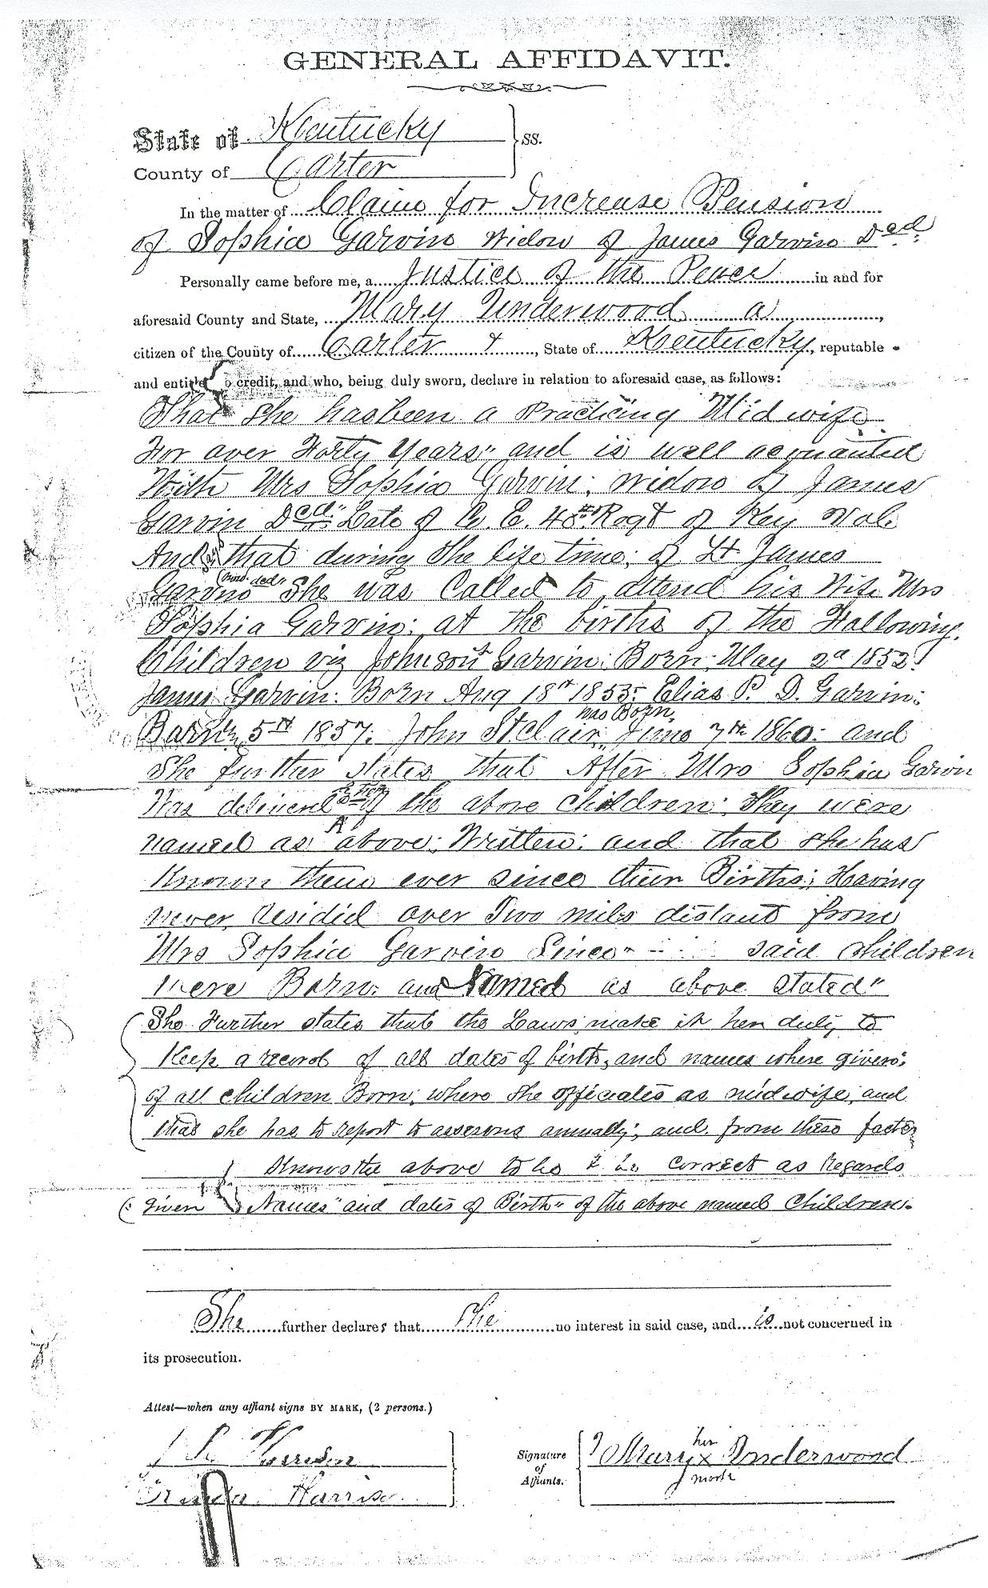 GENERAL AFFIDAVIT.
State of Kentucky } ss.
County of Carter
In the matter of Claim for Increase Pension
of Sophia Garvin Widow of James Garvin Decd
Personally came before me, a Justice of the Peace in and for
aforesaid County and State, Mary Underwood a
citizen of the County of Carter & , State of Kentucky, reputable
and entitled to credit, and who, being duly sworn, declare in relation to aforesaid case, as follows:
That She has been a Practicing Midwife
For over Forty Years" and is well acquainted
With Mrs Sophia Garvin; widow of James
Garvin Decd" Late of Co E. 48th Regt of Key Vol
And that during the life time; of Lt James
Garvin She was Called to attend his Wife Mrs
Sophia Garvin; at the births of the Following
Children viz Johnson Garvin; Born; May 2d 1852
James Garvin: Born Aug 18th 1855: Elias P. D. Garvin;
5th 1857. John StClair, was Born June 7th 1860: and
She further states that After Mrs Sophia Garvin
Was delivered of the above Children; They were
named as above; Written; and that she has
Known them ever since their Births; Having
never resided over Two miles distant from
Mrs Sophia Garvin Since said Children
were Born; and Named as above stated"
She Further states that the Laws make it her duty to
Keep a record of all dates of birth, and names where given;
of all children Born; where she officiates as midwife, and
that she has to report to assessors annually; and from these facts
Knows the above to be correct as Regards
Given Names" and dates of Birth" of the above named Children.
She further declares that she no interest in said case, and is not concerned in
its prosecution.
Attest—when any affiant signs BY MARK, (2 persons.)
Harrison
Harrison
Signature of Affiants.
Mary her x mark Underwood